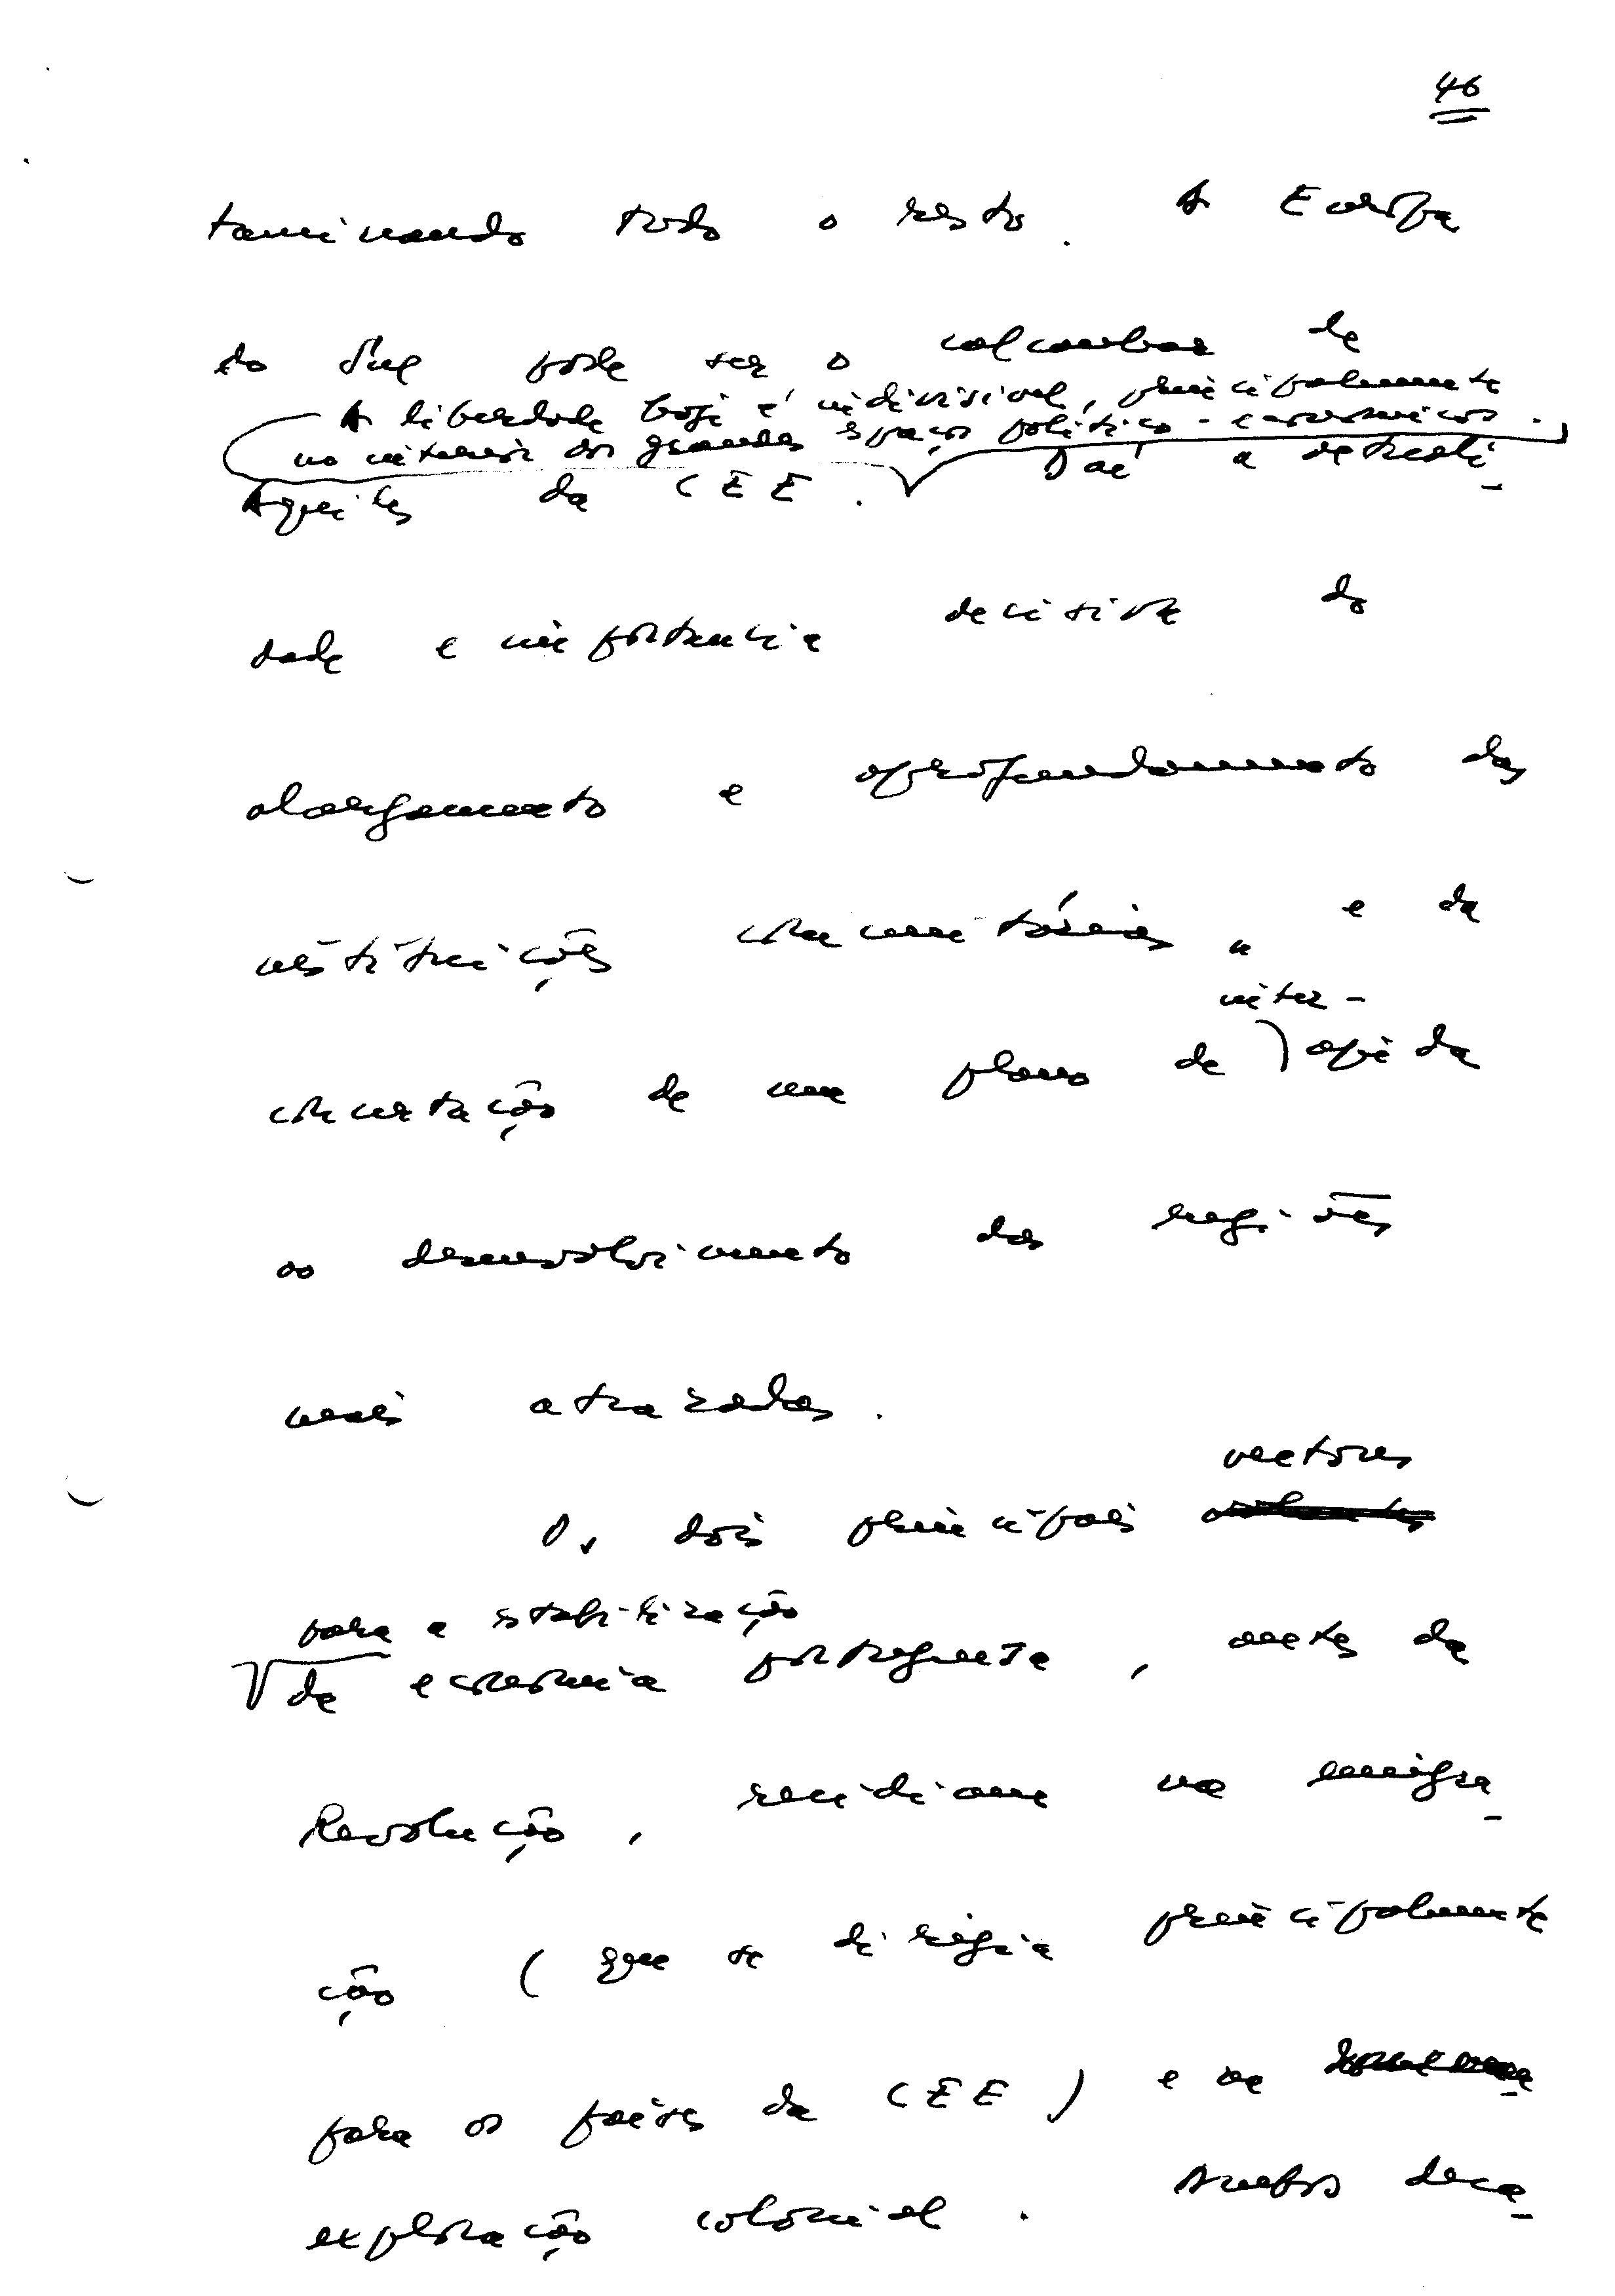 46
taminando todo o resto. A Europa
do Sul pode ser o calcanhar de
A liberdade hoje é indivisível, principalmente
no interior dos grandes espaços político-económicos.
Aquiles da CEE. Daí a actuali-
dade e importância decisiva do
alargamento e aprofundamento das
instituições comunitárias, e da
inter-
concertação de um plano de ajuda
ao desenvolvimento das regiões
mais atrazadas.
vectores
Os dois principais
para a estabilização
da economia portuguesa, antes da
Revolução, residiam na emigra-
ção (que se dirigia principalmente
para os países da CEE) e na
exploração colonial. Ambos deca-